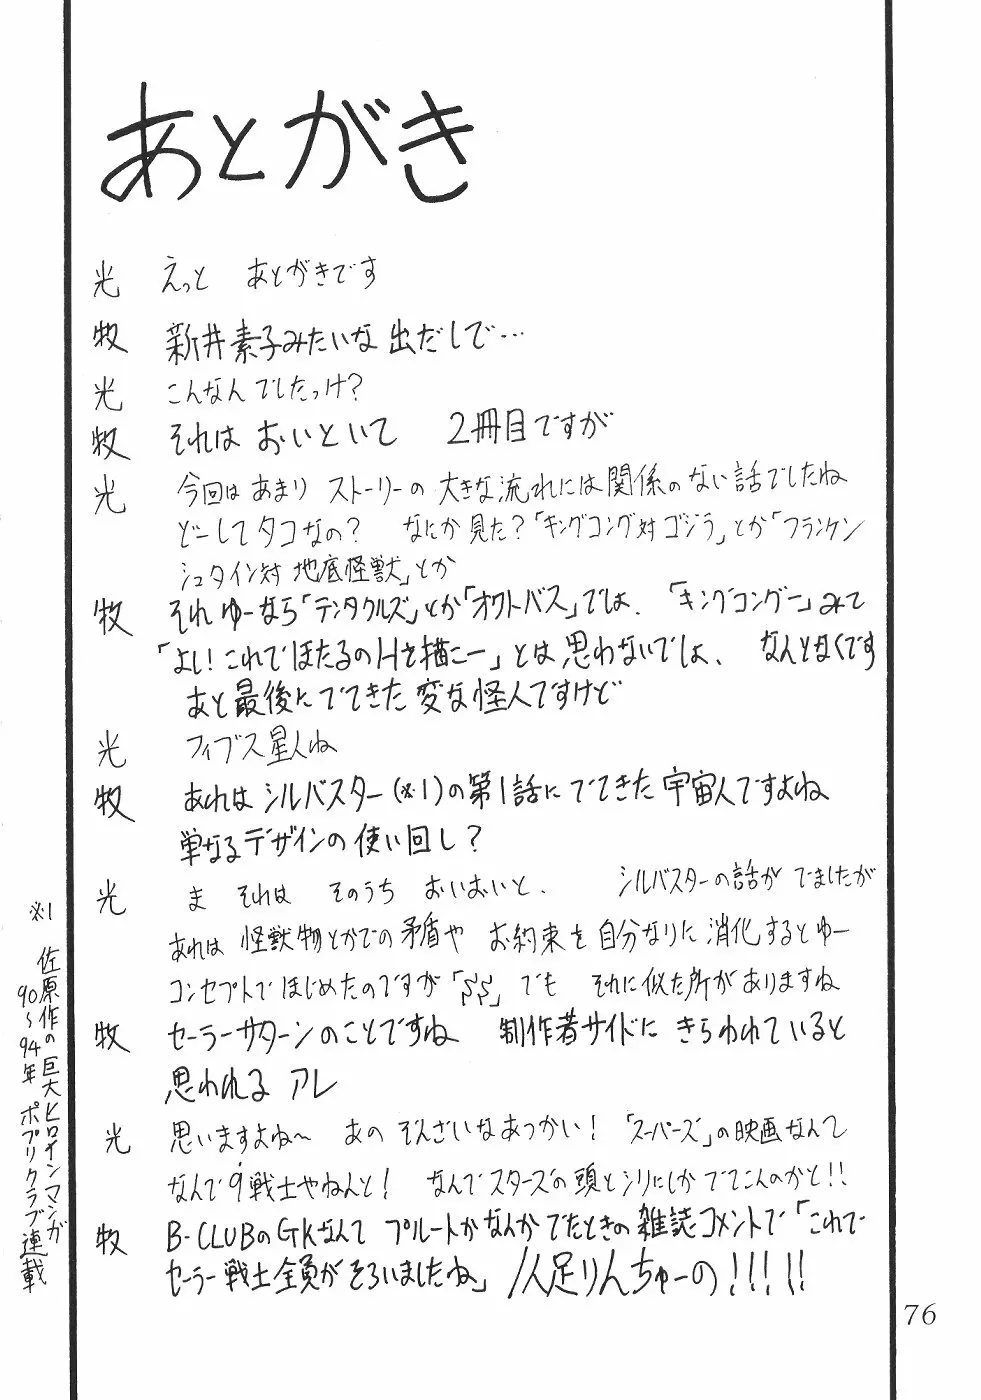 あとがき
光 えっと あとがきです
牧 新井素子みたいな出だしで…
光 こんなんでしたっけ?
牧 それは おいといて 2冊目ですが
光 今回は あまり ストーリーの 大きな流れには関係のない話でしたね
どーしてタコなの? なにか見た?「キングコング対ゴジラ」とか「フランケン
シュタイン対 地底怪獣」とか
牧 それ ゆーなら「テンタクルズ」とか「オクトパス」では、「キングコングー」みて
「よし!これでほたるのHを描こー」とは思わないでしょ、なんとなくです
あと最後にでてきた変な怪人ですけど
光 フィブス星人ね
牧 あれはシルバスター(※1)の第1話にでてきた宇宙人ですよね
単なるデザインの使い回し?
光 ま それは そのうち おいおいと、 シルバスターの話がでましたが
あれは怪獣物とかでの矛盾や お約束を自分なりに消化するとゆー
コンセプトではじめたのですが「SS」でも それに似た所がありますね
牧 セーラーサターンのことですね 制作者サイドにきらわれていると
思われるアレ
光 思いますよね〜 あの ぞんざいなあつかい!「スーパーズ」の映画なんて
なんで9戦士やねんと! なんでスターズの頭とシリにしかでてこんのかと!!
牧 B-CLUBのGKなんて プルートかなんかでたときの雑誌コメントで「これで
セーラー戦士全員がそろいましたね」1人足りんちゅーの!!!!!
※1 佐原作の巨大ヒロインマンガ
90〜94年 ポプリクラブ連載
76